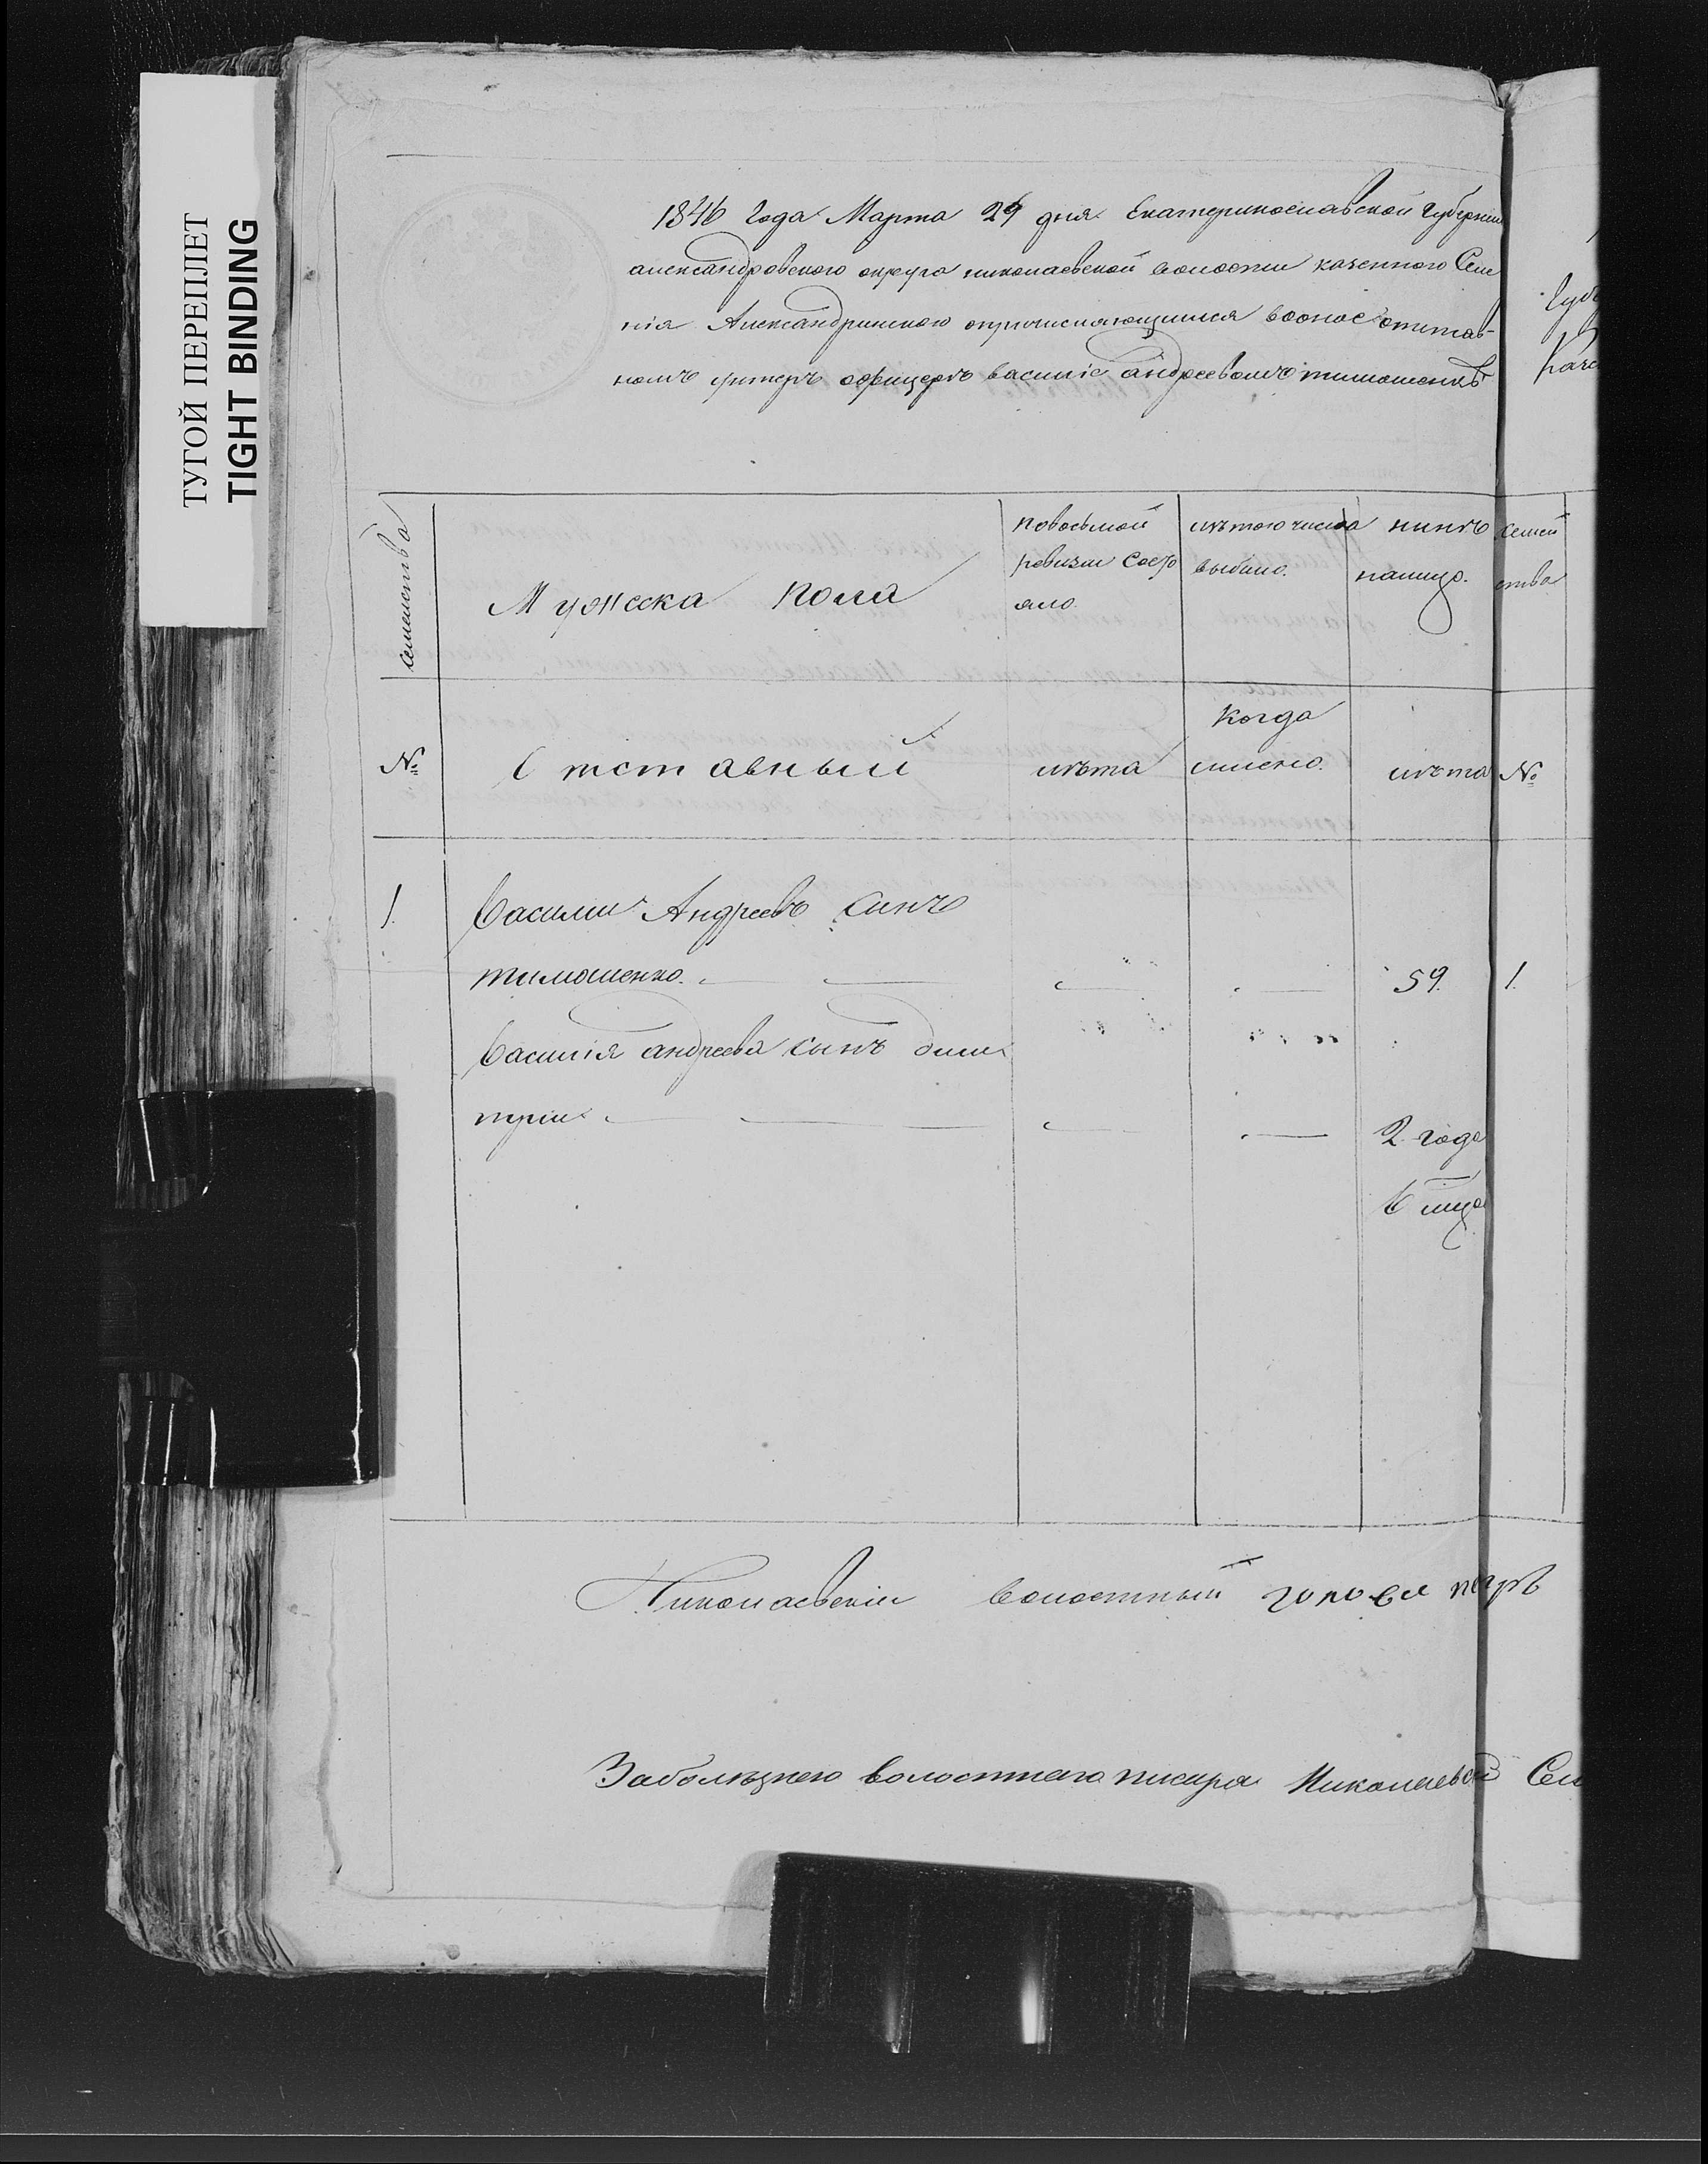 ТУГОЙ ПЕРЕПЛЕТ
TIGHT BINDING
1846 года Марта 29 дня Екатеринославской губернии
александровского округа николаевской волости казенного Селе
нія Александринского опричисляющимся вооное отстав-
номъ унтеръ офицеръ василіе андреевомъ тимошенкѣ
семейства
Мужеска пола
повосьмой
ревизіи состо
яло
изъ того числа
выбыло.
нынѣ
налицо.
семей
ства
№
Отставный
лѣта
когда
именно.
лѣта
№
1.
Василий Андреевъ Синъ
тимошенко.
59.
1.
Василія андреева сынъ дими
трий
2 года
6 мцо
Николаевскій волостный голова петръ
Заболѣзнею волостнаго писаря Николаевской Сел